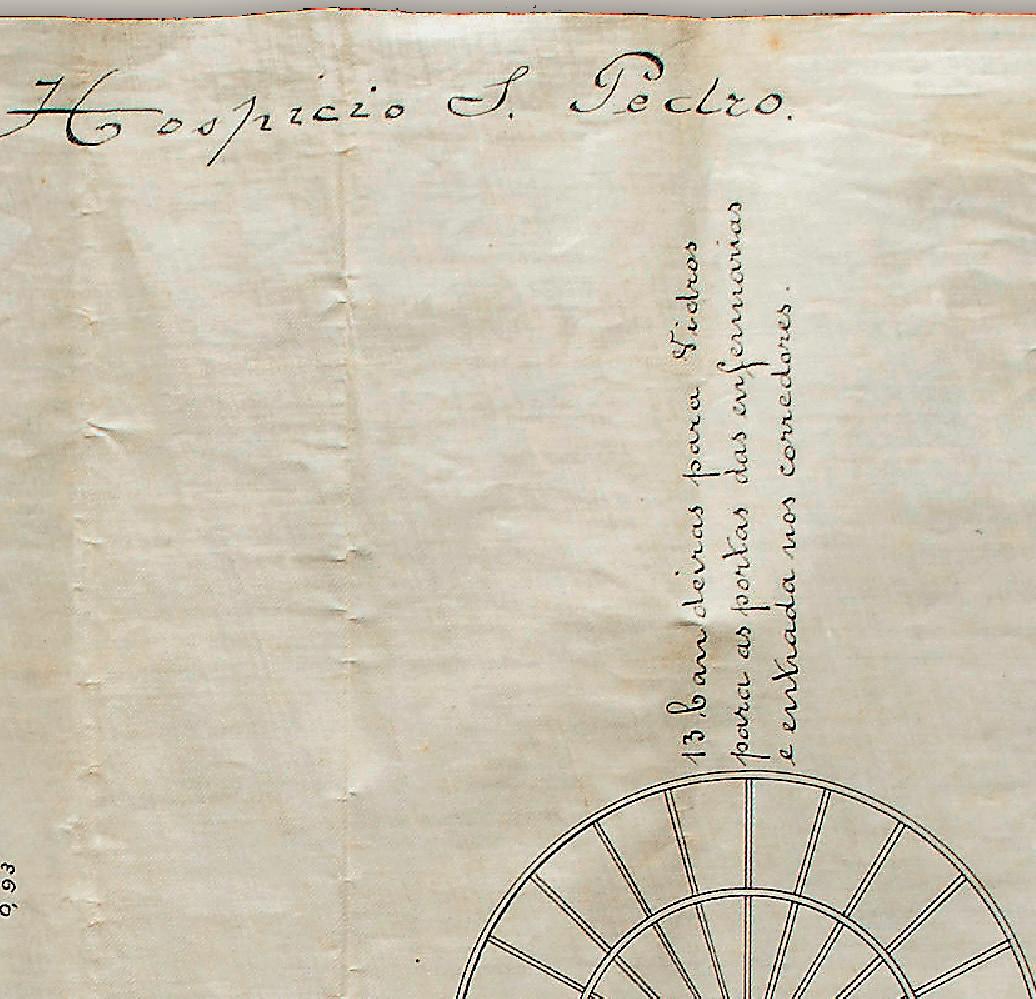 Hospicio S. Pedro.
13 bandeiras para Vidros
para as portas das enfermarias
e entrada nos corredores.
0,93